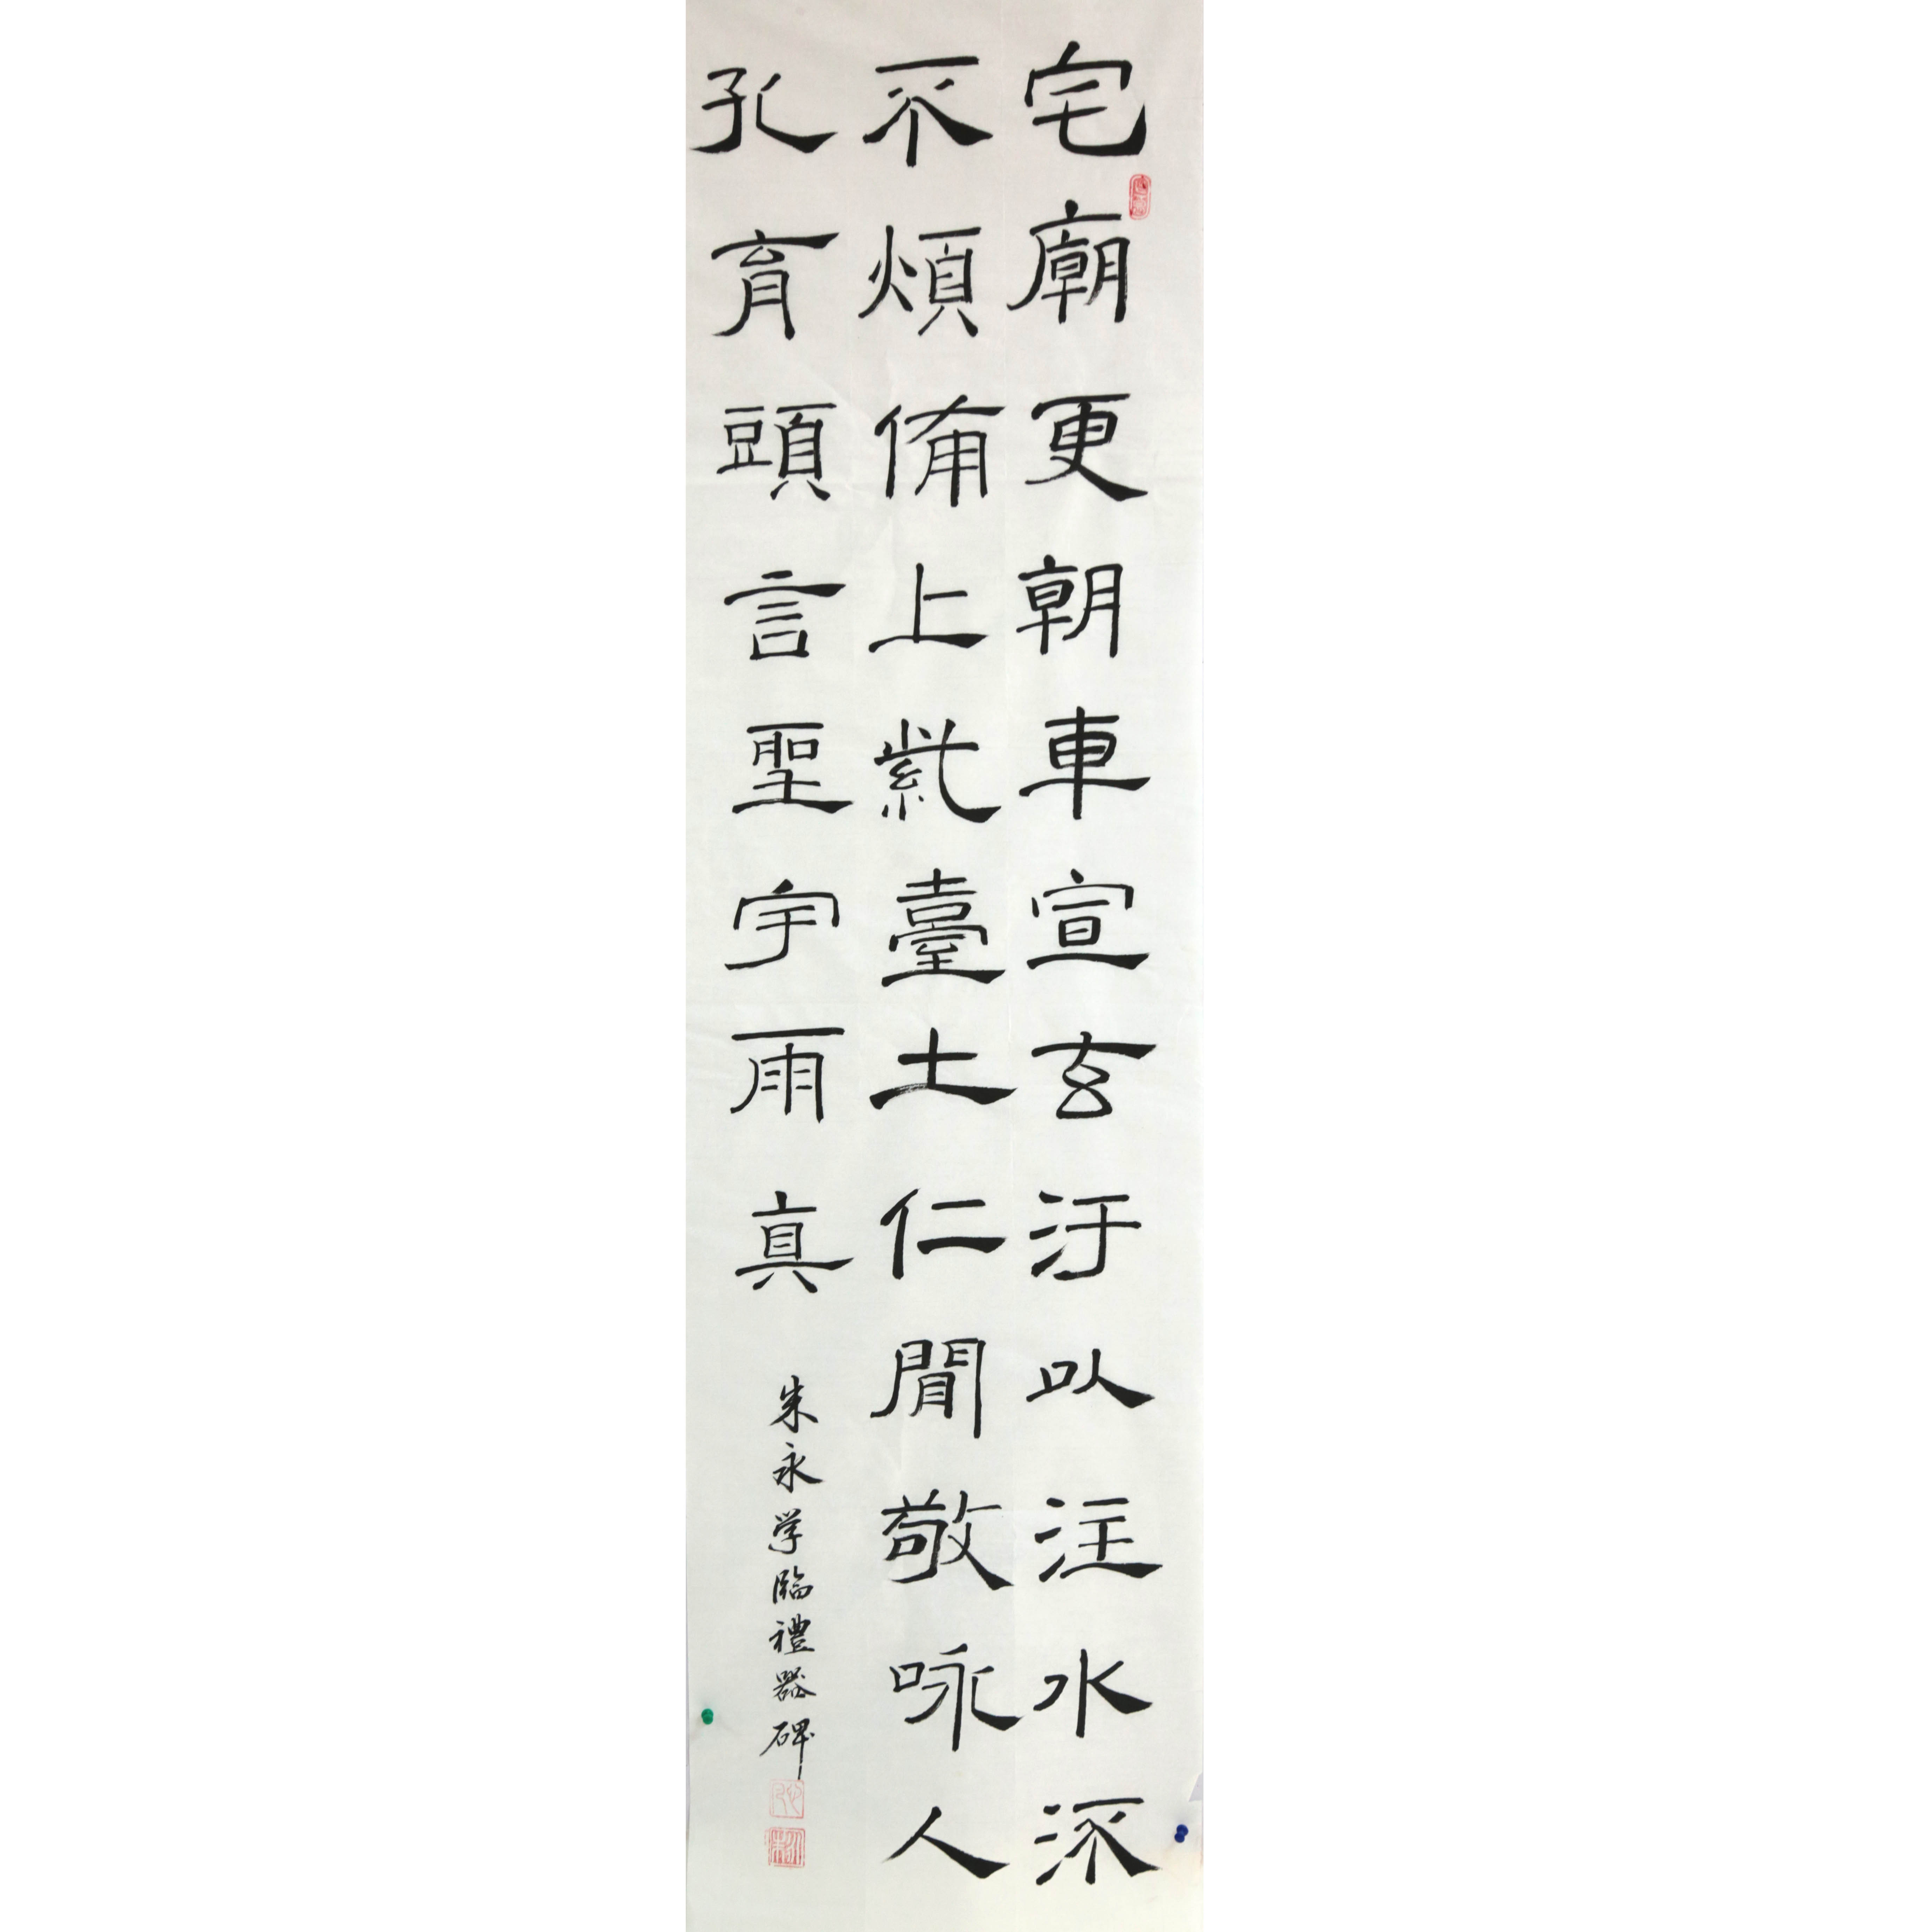 宅廟更朝車宣玄汙以注水流
不煩備上紫臺土仁聞敬咏人
孔育頭言聖宇雨真
朱永学臨禮器碑